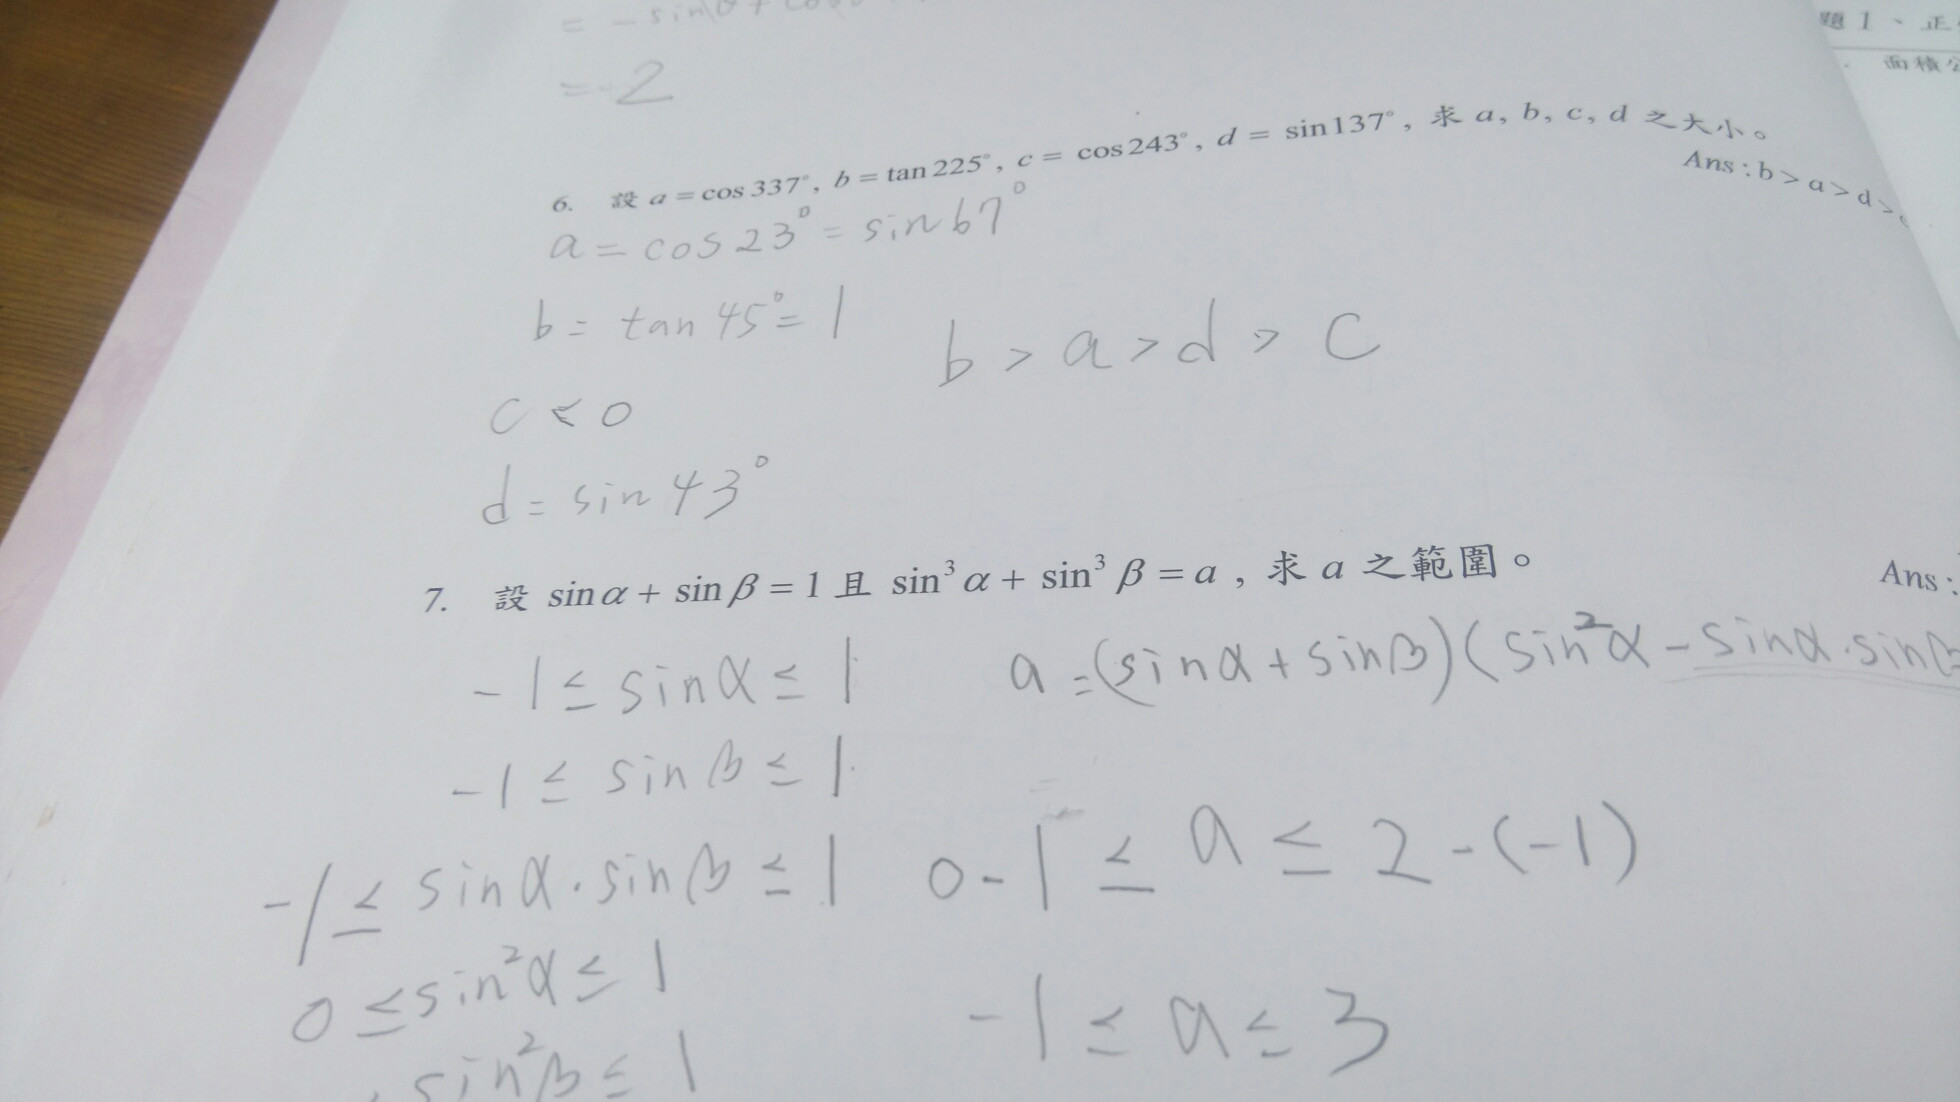 = -sinθ + cos
= -2
題 1、正
面積公
6. 設 a = cos 337°, b = tan 225°, c = cos 243°, d = sin 137°, 求 a, b, c, d 之大小。
Ans : b > a > d >
a = cos 23° = sin 67°
b = tan 45° = 1
b > a > d > c
c < 0
d = sin 43°
7. 設 sin α + sin β = 1 且 sin³ α + sin³ β = a , 求 a 之範圍。
Ans :
-1 ≤ sin α ≤ 1
a = (sin α + sin β)(sin² α - sin α · sin β
-1 ≤ sin β ≤ 1
-1 ≤ sin α · sin β ≤ 1
0 - 1 ≤ a ≤ 2 - (-1)
0 ≤ sin² α ≤ 1
-1 ≤ a ≤ 3
sin² β ≤ 1